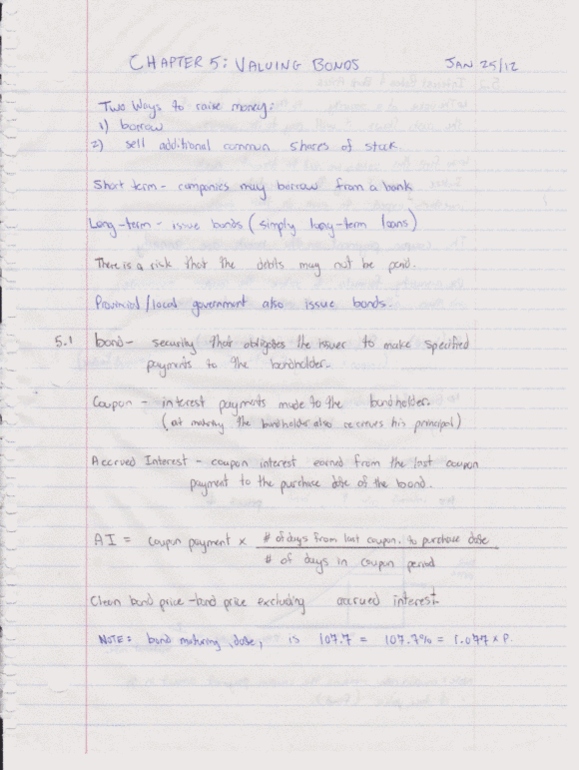 CHAPTER 5: VALUING BONDS JAN 25/12
Two Ways to raise money:
1) borrow
2) sell additional common shares of stock.
Short term - companies may borrow from a bank
Long-term - issue bonds (simply long-term loans)
There is a risk that the debts may not be paid.
Provincial/local government also issue bonds.
5.1 bond - security that obligates the issuer to make specified
payments to the bondholder.
Coupon - interest payments made to the bondholder.
(at maturity the bondholder also receives his principal)
Accrued Interest - coupon interest earned from the last coupon
payment to the purchase date of the bond.
AI = coupon payment × # of days from last coupon. to purchase date
# of days in coupon period
Clean bond price - bond price excluding accrued interest.
NOTE: bond maturing date, is 107.7 = 107.7% = 1.077 × P.